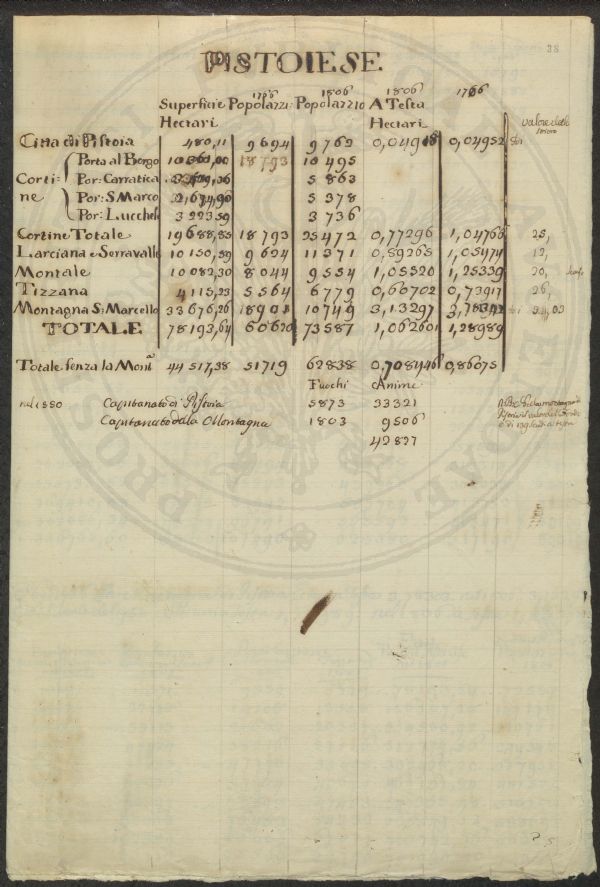 38
PISTOIESE
1796 1806 1806 1766
Superficie Popolazzi: Popolazzio A Testa
Hectari Hectari
valore delle
Citta di Pistoia 480,11 9694 9762 0,04918 0,04952
Porta al Borgo 18793 10495
Corti= Por: Carratica 5863
ne Por: S Marco 5378
Por: Lucchese 3223,59 3736
Cortine Totale 19688,85 18793 25472 0,77296 1,04766 25,
Larciana e Serravalle 10150,59 9624 11371 0,89265 1,05474 12,
Montale 10082,30 8044 9554 1,05520 1,25339 20,
Tizzana 4115,23 5564 6779 0,60702 0,73917 26,
Montagna S: Marcello 33676,26 8901 10749 3,13297 3,78342
TOTALE 78193,64 60620 73587 1,062601 1,28989
Totale senza la Mont.a 44517,38 51719 62838 0,708446 0,86075
Fuochi Anime
nel 1550 Capitanato di Pistoia 5873 33321
Capitanato dela Montagna 1803 9506
42827